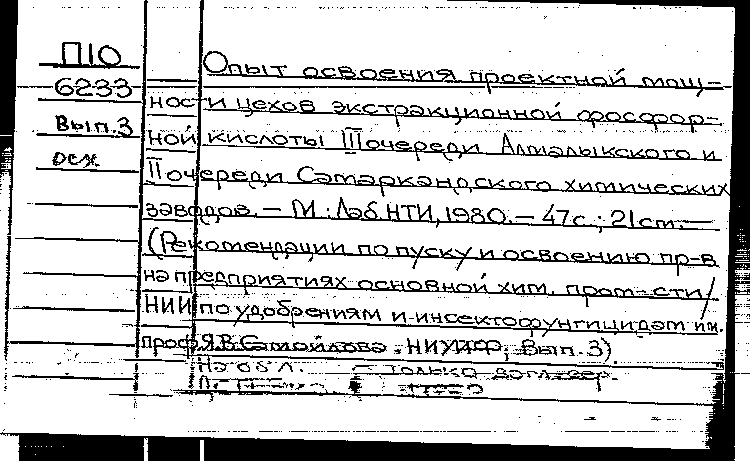 П10
6233
Вып.3
осн
Опыт освоения проектной мощ-
ности цехов экстракционной фосфор-
ной кислоты III очереди Алмалыкского и
II очереди Самаркандского химических
заводов. — М.: Лаб. НТИ, 1980. — 47с.; 21см. —
(Рекомендации по пуску и освоению пр-в
на предприятиях основной хим. пром-сти/
НИИ по удобрениям и инсектофунгицидам им.
проф. Я.В. Самойлова. НИУИФ; Вып. 3)
На обл. — только загл. сер.